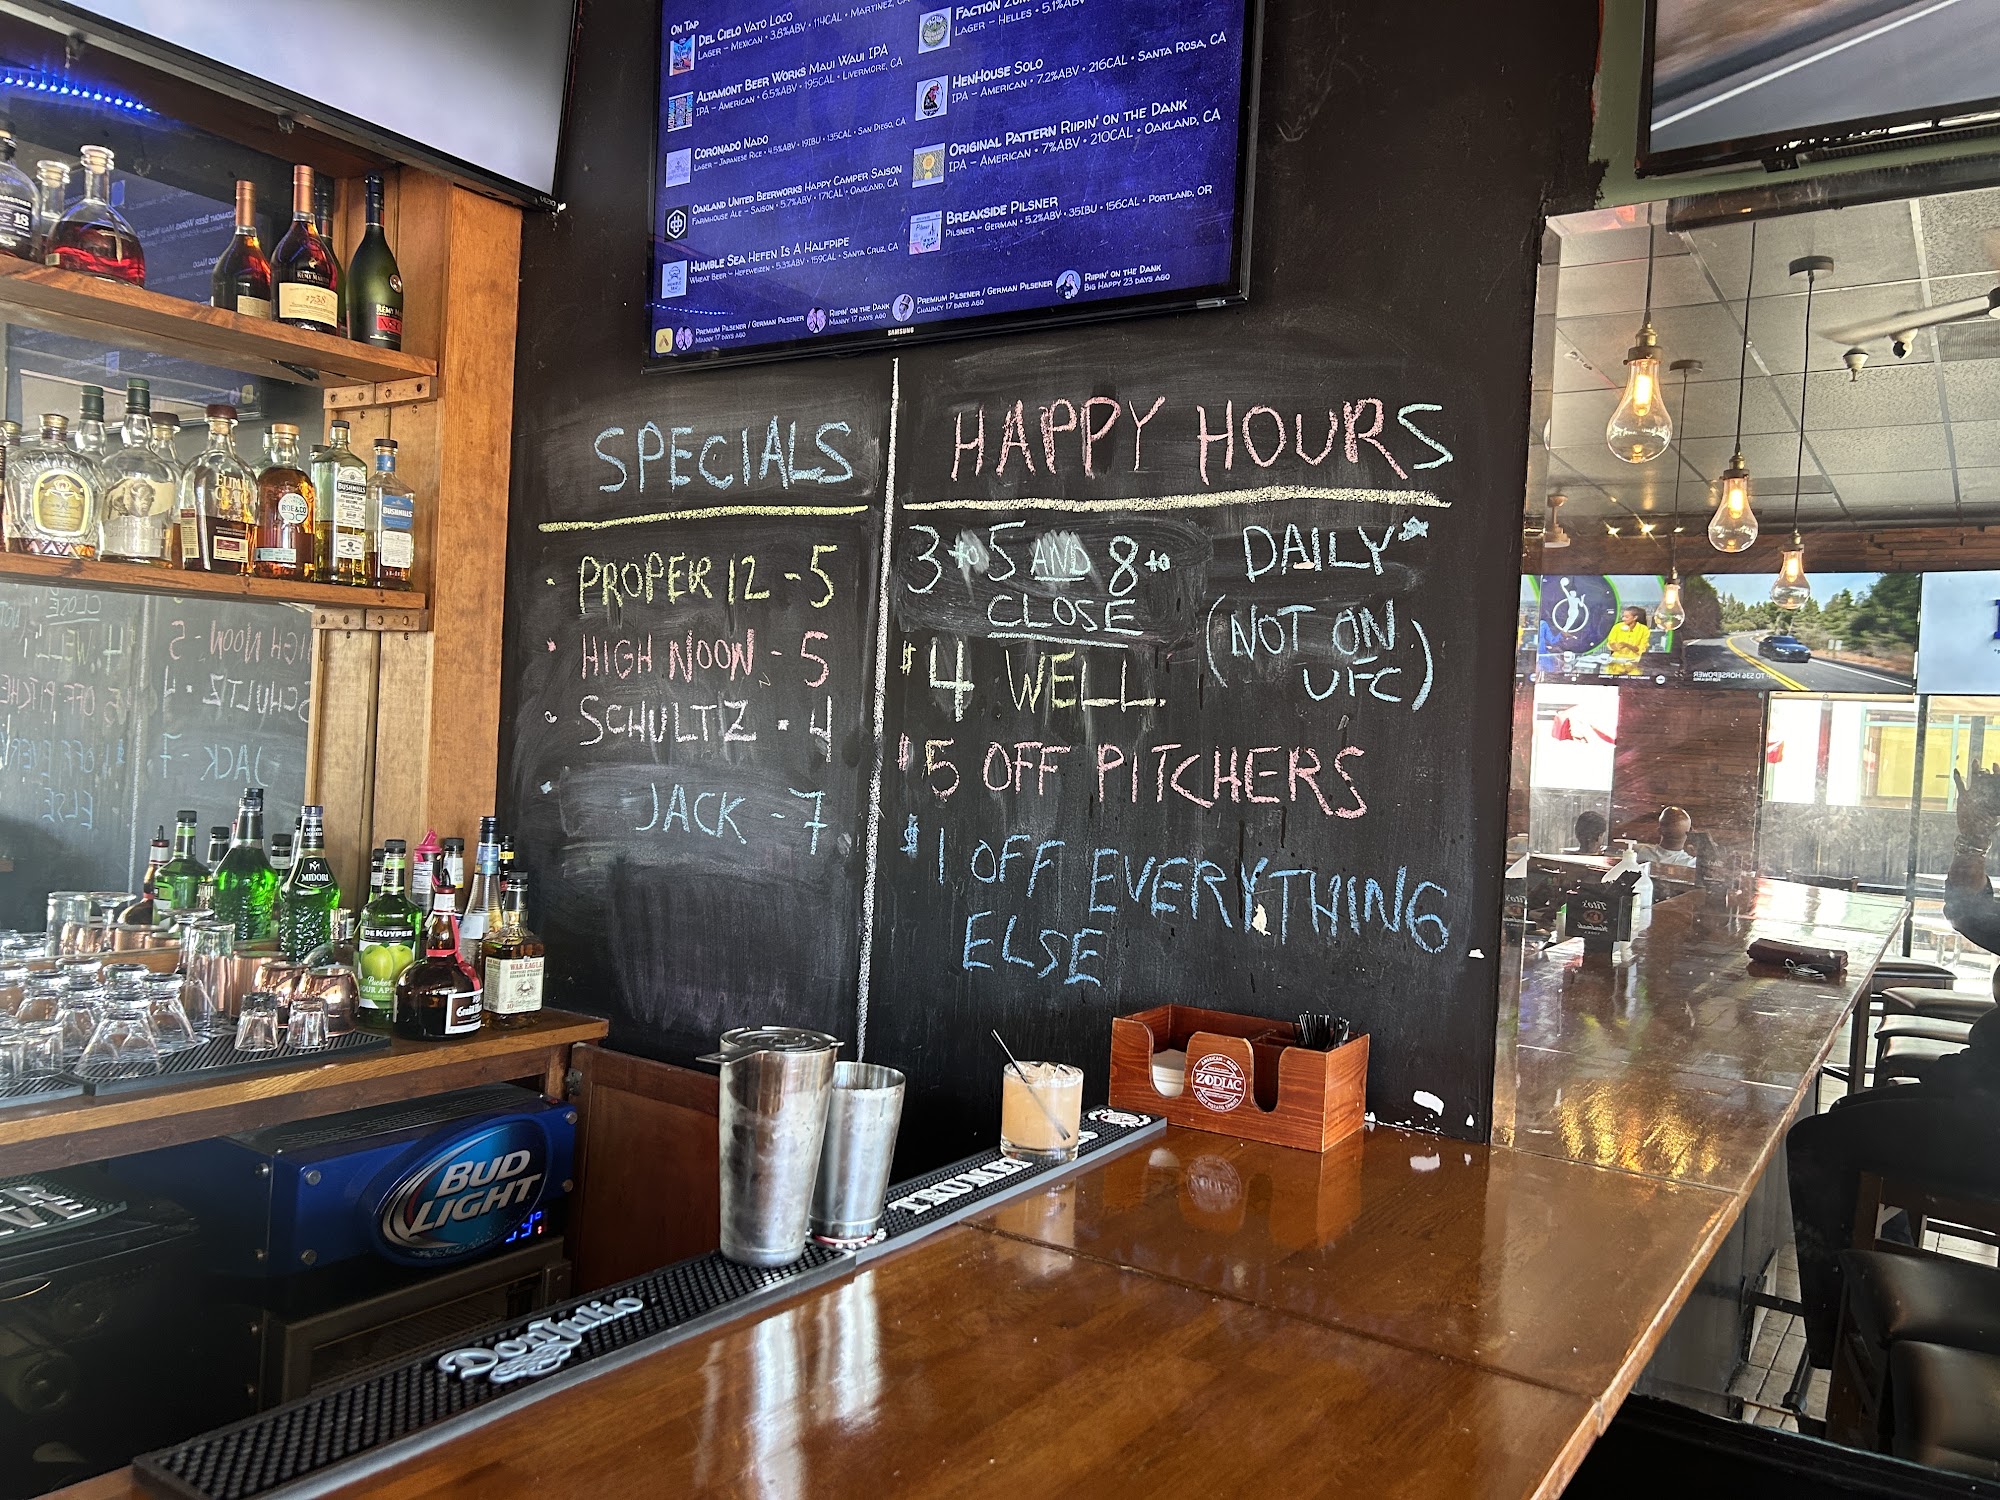 On Tap
Del Cielo Vato Loco
Lager – Mexican • 3.8%ABV • 114CAL • Martinez, CA
Altamont Beer Works Maui Waui IPA
IPA – American • 6.5%ABV • 195CAL • Livermore, CA
Coronado Nado
Lager – Japanese Rice • 4.5%ABV • 19IBU • 135CAL • San Diego, CA
Oakland United Beerworks Happy Camper Saison
Farmhouse Ale – Saison • 5.7%ABV • 171CAL • Oakland, CA
Humble Sea Hefen Is A Halfpipe
Wheat Beer – Hefeweizen • 5.3%ABV • 159CAL • Santa Cruz, CA
Faction
Lager – Helles • 5.1%ABV
HenHouse Solo
IPA – American • 7.2%ABV • 216CAL • Santa Rosa, CA
Original Pattern Riipin' on the Dank
IPA – American • 7%ABV • 210CAL • Oakland, CA
Breakside Pilsner
Pilsner – German • 5.2%ABV • 35IBU • 156CAL • Portland, OR
Premium Pilsener / German Pilsener
Manny 17 days ago
Riipin' on the Dank
Manny 17 days ago
Premium Pilsener / German Pilsener
Chauncy 17 days ago
Riipin' on the Dank
Big Happy 23 days ago
SAMSUNG
VIZIO
SPECIALS
• PROPER 12 - 5
• HIGH NOON - 5
• SCHULTZ - 4
• JACK - 7
HAPPY HOURS
3 to 5 AND 8 to
CLOSE
DAILY*
(NOT ON
UFC)
$4 WELL
$5 OFF PITCHERS
$1 OFF EVERYTHING
ELSE
18
1738
BUSHMILLS
BUSHMILLS
MIDORI
DEKUYPER
Pucker
WAR EAGLE
BUD
LIGHT
Don Julio
TRUMER
AMERICAN - MADE
ZODIAC
CRAFT POTATO SPIRITS
Tito's
Handmade